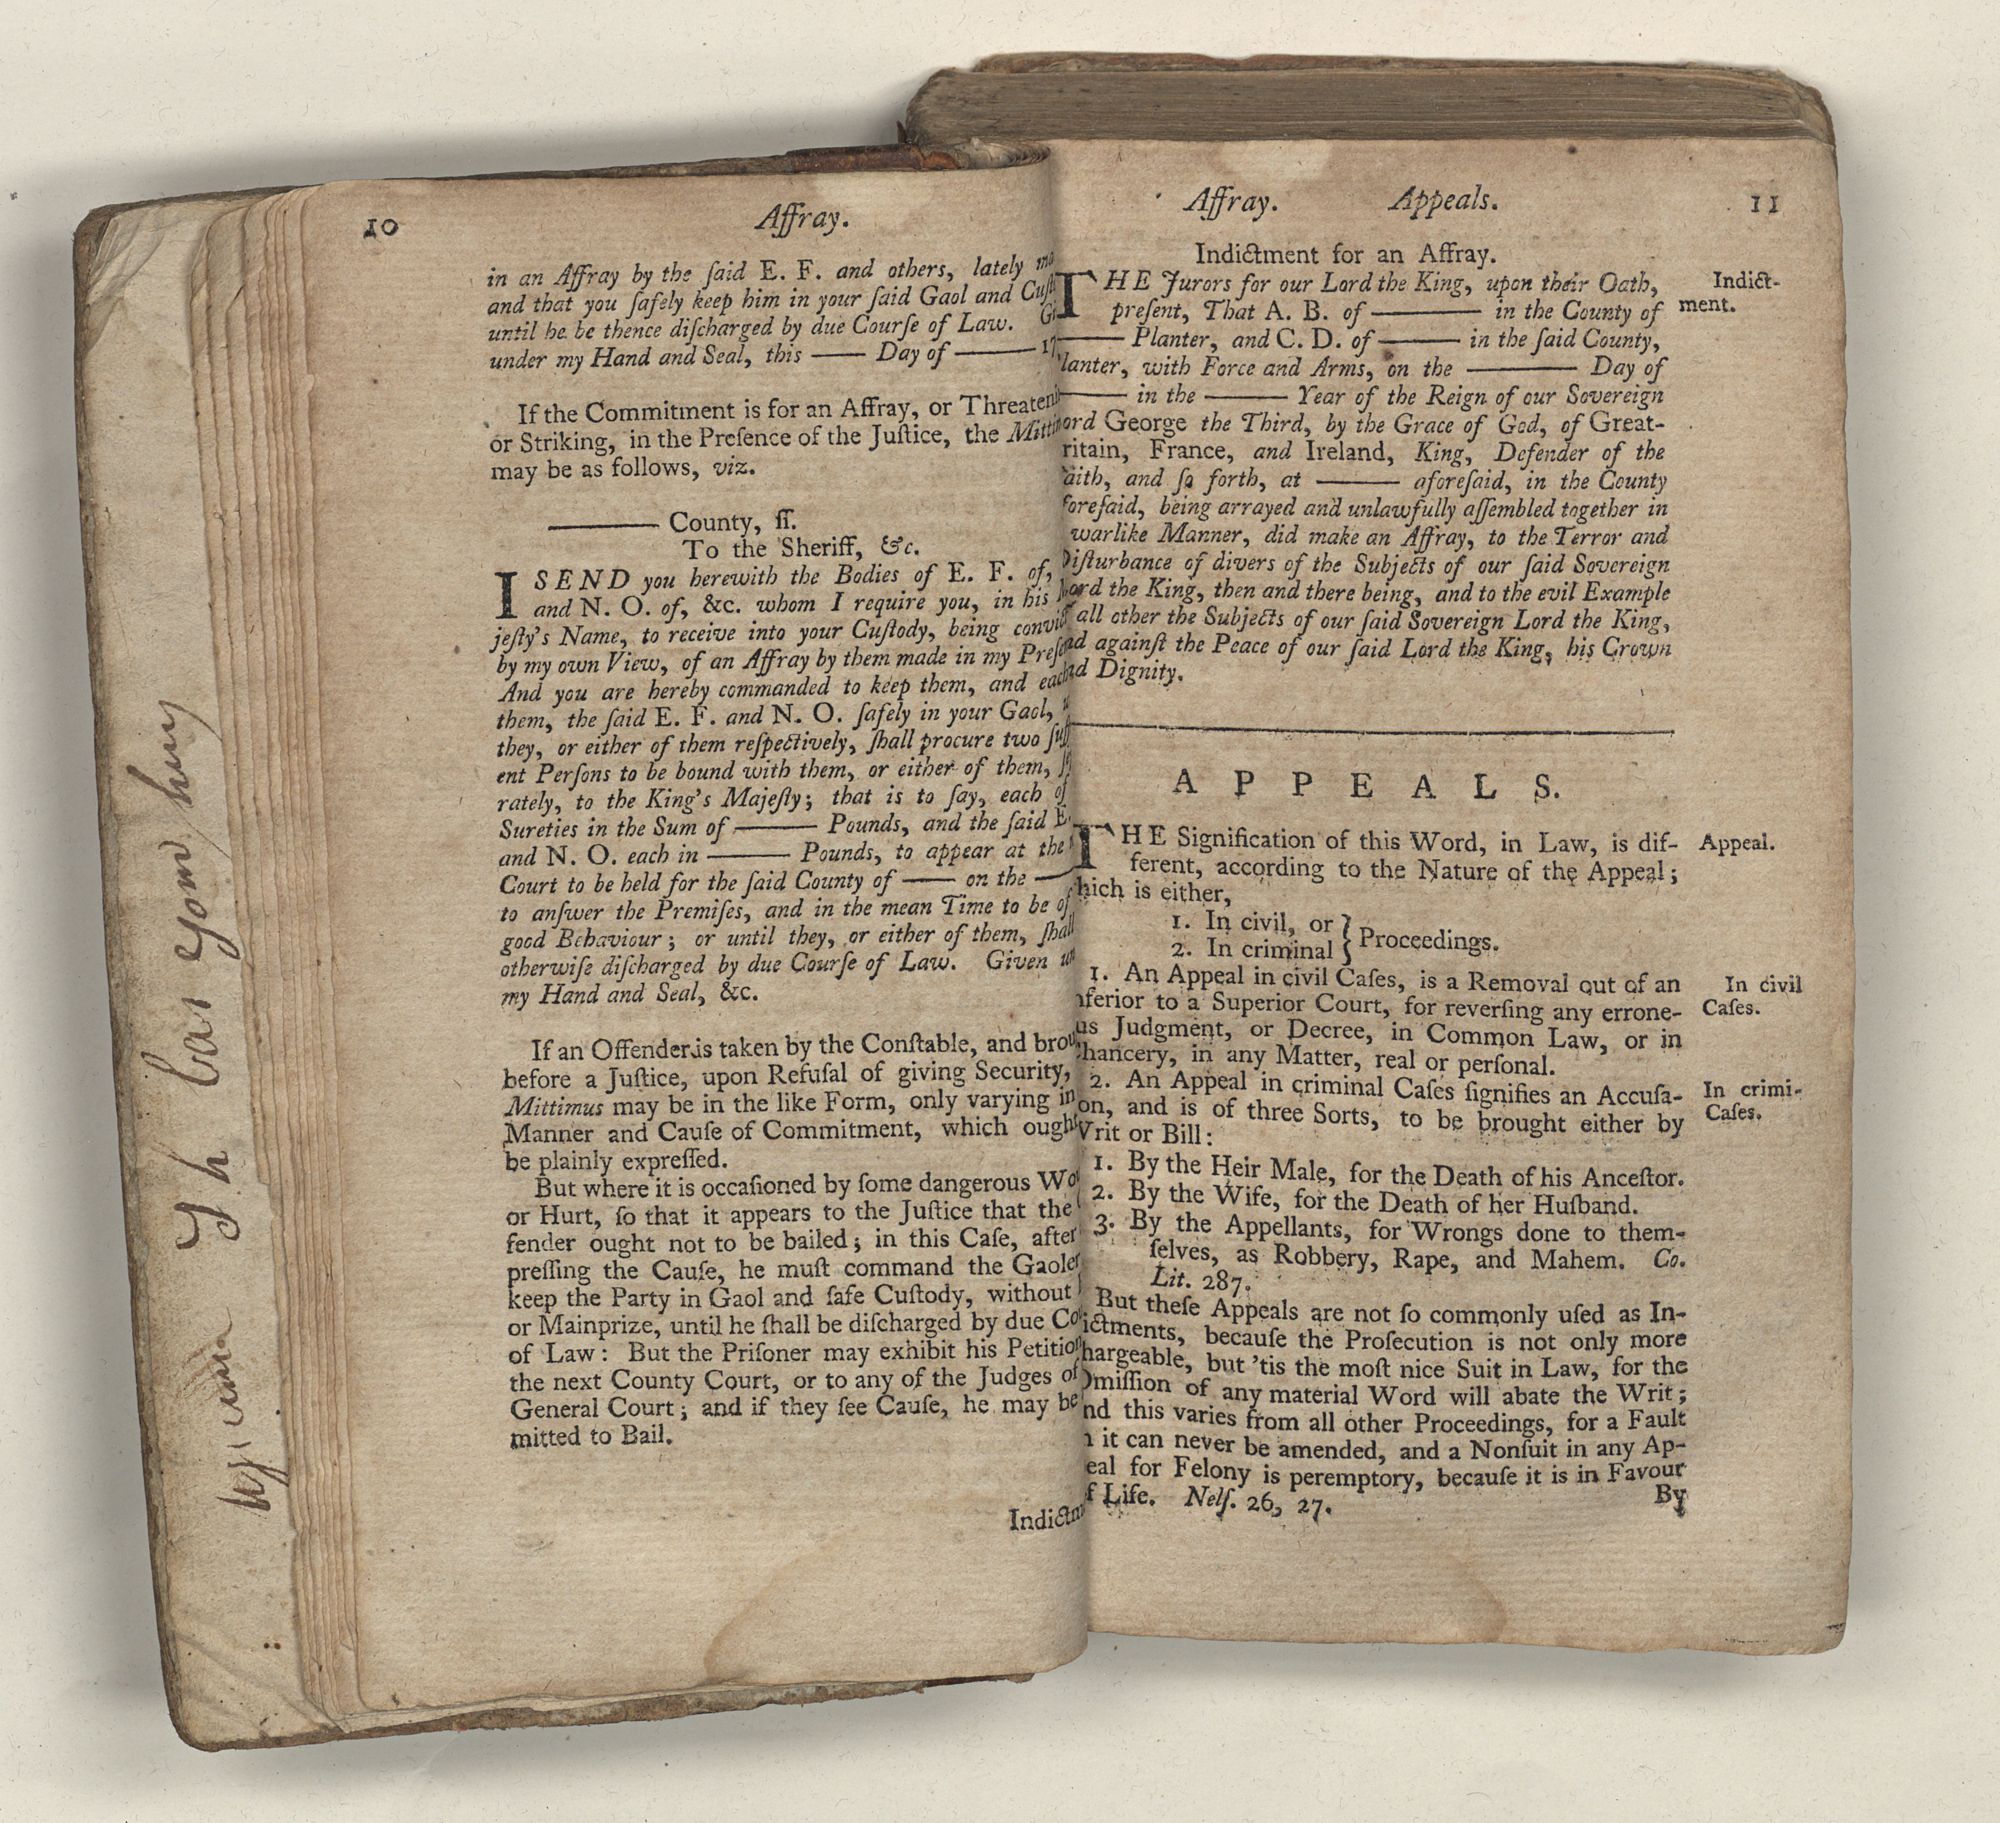 10 Affray.
in an Affray by the ſaid E. F. and others, lately
and that you ſafely keep him in your ſaid Gaol and
until he be thence diſcharged by due Courſe of Law.
under my Hand and Seal, this —— Day of ——— 17
If the Commitment is for an Affray, or
or Striking, in the Preſence of the Juſtice, the
may be as follows, viz.
——— County, ſſ.
To the Sheriff, &c.
I SEND you herewith the Bodies of E. F. of,
and N. O. of, &c. whom I require you, in his
jeſty's Name, to receive into your Cuſtody, being
by my own View, of an Affray by them made in my
And you are hereby commanded to keep them, and each
them, the ſaid E. F. and N. O. ſafely in your Gaol,
they, or either of them reſpectively, ſhall procure two
ent Perſons to be bound with them, or either of them,
rately, to the King's Majeſty; that is to ſay, each of
Sureties in the Sum of ——— Pounds, and the ſaid E.
and N. O. each in ——— Pounds, to appear at the
Court to be held for the ſaid County of —— on the ——
to anſwer the Premiſes, and in the mean Time to be of
good Behaviour; or until they, or either of them, ſhall
otherwiſe diſcharged by due Courſe of Law. Given
my Hand and Seal, &c.
If an Offender is taken by the Conſtable, and
before a Juſtice, upon Refuſal of giving Security,
Mittimus may be in the like Form, only varying in
Manner and Cauſe of Commitment, which ought
be plainly expreſſed.
But where it is occaſioned by ſome dangerous
or Hurt, ſo that it appears to the Juſtice that the
fender ought not to be bailed; in this Caſe, after
preſſing the Cauſe, he muſt command the Gaoler
keep the Party in Gaol and ſafe Cuſtody, without
or Mainprize, until he ſhall be diſcharged by due
of Law: But the Priſoner may exhibit his Petition
the next County Court, or to any of the Judges of
General Court; and if they ſee Cauſe, he may be
mitted to Bail.
Affray. Appeals. 11
Indictment for an Affray.
THE Jurors for our Lord the King, upon their Oath,
Indict-
ment.
preſent, That A. B. of ——— in the County of
——— Planter, and C. D. of ——— in the ſaid County,
lanter, with Force and Arms, on the ——— Day of
——— in the ——— Year of the Reign of our Sovereign
ord George the Third, by the Grace of God, of Great-
ritain, France, and Ireland, King, Defender of the
aith, and ſo forth, at ——— aforeſaid, in the County
foreſaid, being arrayed and unlawfully aſſembled together in
warlike Manner, did make an Affray, to the Terror and
Diſturbance of divers of the Subjects of our ſaid Sovereign
Lord the King, then and there being, and to the evil Example
all other the Subjects of our ſaid Sovereign Lord the King,
nd againſt the Peace of our ſaid Lord the King, his Crown
nd Dignity.
APPEALS.
THE Signification of this Word, in Law, is dif-
Appeal.
ferent, according to the Nature of the Appeal;
hich is either,
1. In civil, or
2. In criminal } Proceedings.
1. An Appeal in civil Caſes, is a Removal out of an
In civil
Caſes.
nferior to a Superior Court, for reverſing any errone-
us Judgment, or Decree, in Common Law, or in
hancery, in any Matter, real or perſonal.
2. An Appeal in criminal Caſes ſignifies an Accuſa-
In crimi-
Caſes.
on, and is of three Sorts, to be brought either by
Writ or Bill:
1. By the Heir Male, for the Death of his Anceſtor.
2. By the Wife, for the Death of her Huſband.
3. By the Appellants, for Wrongs done to them-
ſelves, as Robbery, Rape, and Mahem. Co.
Lit. 287.
But theſe Appeals are not ſo commonly uſed as In-
ictments, becauſe the Proſecution is not only more
hargeable, but 'tis the moſt nice Suit in Law, for the
Omiſſion of any material Word will abate the Writ;
nd this varies from all other Proceedings, for a Fault
it can never be amended, and a Nonſuit in any Ap-
eal for Felony is peremptory, becauſe it is in Favour
f Life. Nelſ. 26, 27.
By